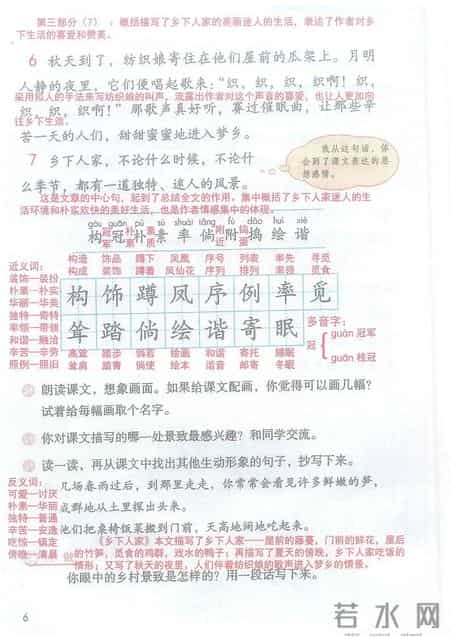 第三部分（7）：概括描写了乡下人家的美丽迷人的生活，表达了作者对乡
下生活的喜爱和赞美。
6 秋天到了，纺织娘寄住在他们屋前的瓜架上。月明
人静的夜里，它们便唱起歌来：“织，织，织，织啊！织，
采用拟人的手法来写纺织娘的叫声，流露出作者对这个声音的喜爱，也让人更加向
织，织，织啊！”那歌声真好听，赛过催眠曲，让那些辛
往乡下生活。
苦一天的人们，甜甜蜜蜜地进入梦乡。
7 乡下人家，不论什么时候，不论什
么季节，都有一道独特、迷人的风景。
我从这句话，体
会到了课文表达的思
想感情。
这是文章的中心句，起到了总结全文的作用。集中概括了乡下人家迷人的生
活环境和朴实欢快的美好生活，也是作者情感集中的体现。
gòu guān pǔ sù shuài tǎng fù dǎo huì xié
构冠朴素率倘附捣绘谐
近义词：
装饰—装扮
朴素—朴实
华丽—华美
独特—奇特
率领—带领
和谐—融洽
辛苦—辛劳
照例—照旧
构造 饰品 蹲下 凤凰 序号 列表 率先 寻觅
构成 装饰 蹲着 凤仙花 序列 排列 率领 觅食
构 饰 蹲 凤 序 例 率 觅
耸 踏 倘 绘 谐 寄 眠
高耸 踏步 倘若 绘画 和谐 寄托 睡眠
耸肩 踏青 倘使 绘本 谐音 邮寄 冬眠
多音字：
冠
guān 冠军
guān 桂冠
朗读课文，想象画面。如果给课文配画，你觉得可以画几幅？
试着给每幅画取个名字。
你对课文描写的哪一处景致最感兴趣？和同学交流。
读一读，再从课文中找出其他生动形象的句子，抄写下来。
反义词：
可爱—讨厌
朴素—华丽
独特—普通
辛苦—安逸
吃惊—镇定
傍晚—清晨
几场春雨过后，到那里走走，你常常会看见许多鲜嫩的笋，
成群地从土里探出头来。
他们把桌椅饭菜搬到门前，天高地阔地吃起来。
《乡下人家》本文描写了乡下人家——屋前的藤蔓，门前的鲜花，屋后
的竹笋，觅食的鸡群，戏水的鸭子；再描写了夏天的傍晚，乡下人家吃饭的
情形；又写了秋天的夜里，人们伴着纺织娘的歌声进入梦乡的情景。
你眼中的乡村景致是怎样的？用一段话写下来。
6
若水网